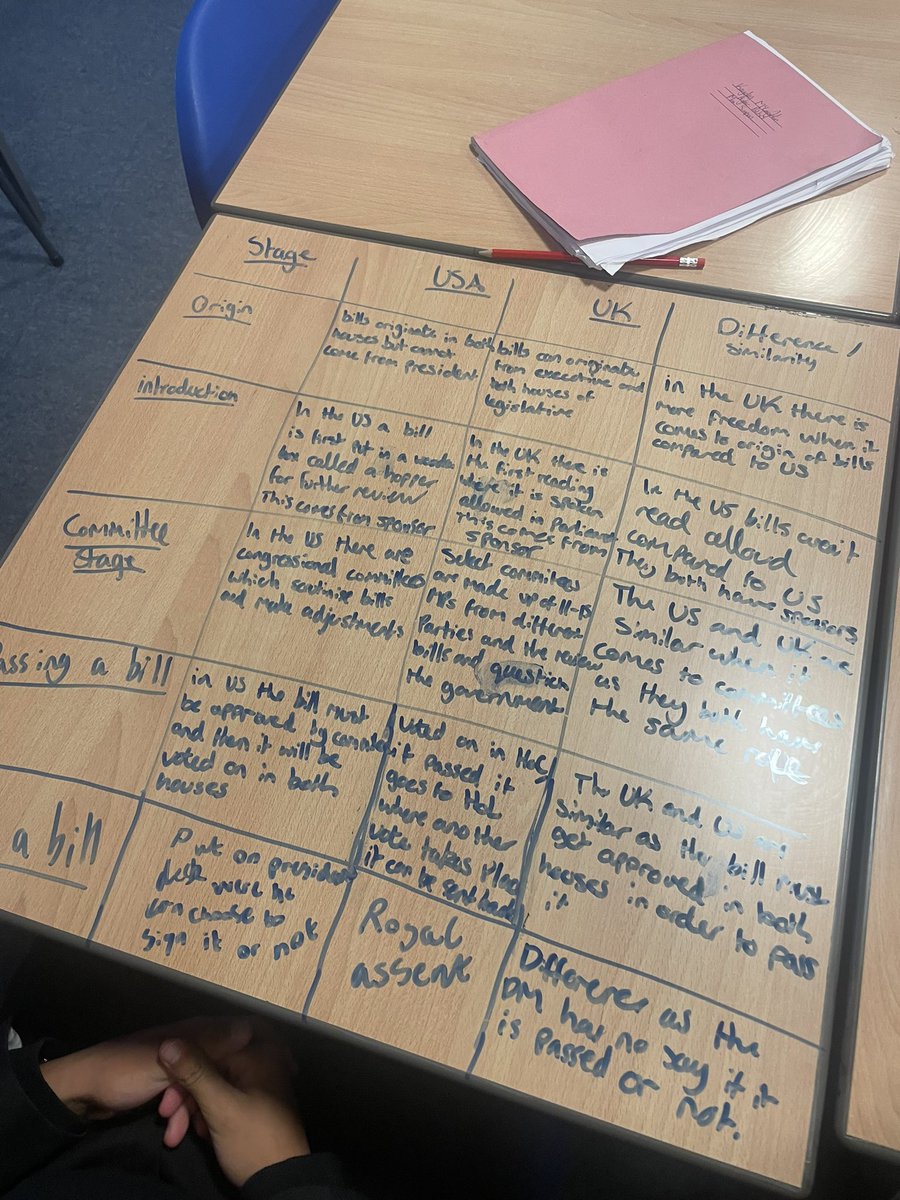 Stage
USA
UK
Difference /
similarity
Origin
bills originate in both
houses but cannot
come from president
bills can originate
from executive and
both houses of
legislative
in the UK there is
more freedom when it
comes to origin of bills
compared to US
introduction
In the US a bill
is first put in a wooden
box called a hopper
for further review
This comes from sponsor
In the UK there is
the first reading
where it is spoken
allowed in Parliament
This comes from
sponsor
In the US bills aren't
read alloud
compared to US
They both have sponsors
Committee
Stage
In the US there are
congressional committees
which scutinise bills
and make adjustments
Select committees
are made up of 11-15
MPs from different
Parties and the review
bills and question
the government
The US and UK are
Similar when it
comes to committees
as they both have
the same role
assing a bill
in US the bill must
be approved by commitee
and then it will be
voted on in both
houses
Voted on in HoC,
if passed it
goes to HoL
where another
vote takes place
it can be sent back
The UK and US are
Similar as the bill must
get approved in both
houses in order to pass
it
a bill
Put on president
desk were he
can choose to
sign it or not
Royal
assent
Differences as the
PM has no say if it
is passed or not.